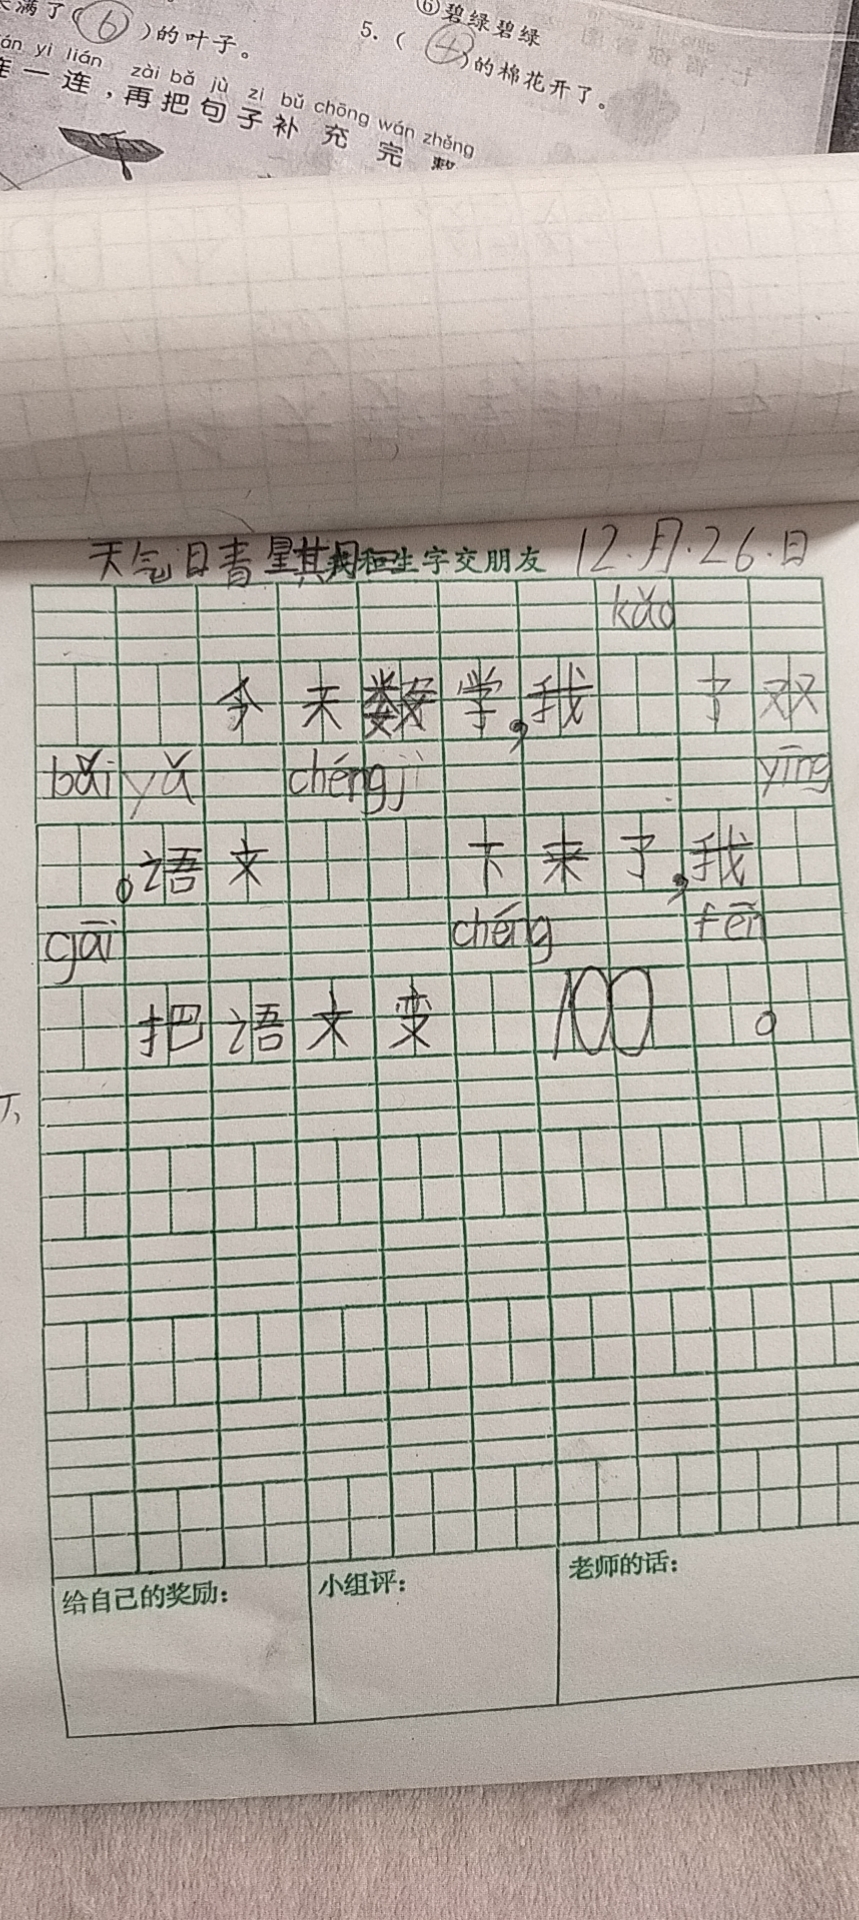 满了(⑥)的叶子。
⑥碧绿碧绿
5.(④)的棉花开了。
yi lián zài bǎ jù zi bǔ chōng wán zhěng
连一连，再把句子补充完整
天气日青星其 和生字交朋友 12.月.26.日
kǎo
今天数学,我 了双
bǎi yǔ chéng jì yīng
。语文 下来了,我
gāi chéng fēn
把语文变 100 。
给自己的奖励:
小组评:
老师的话: